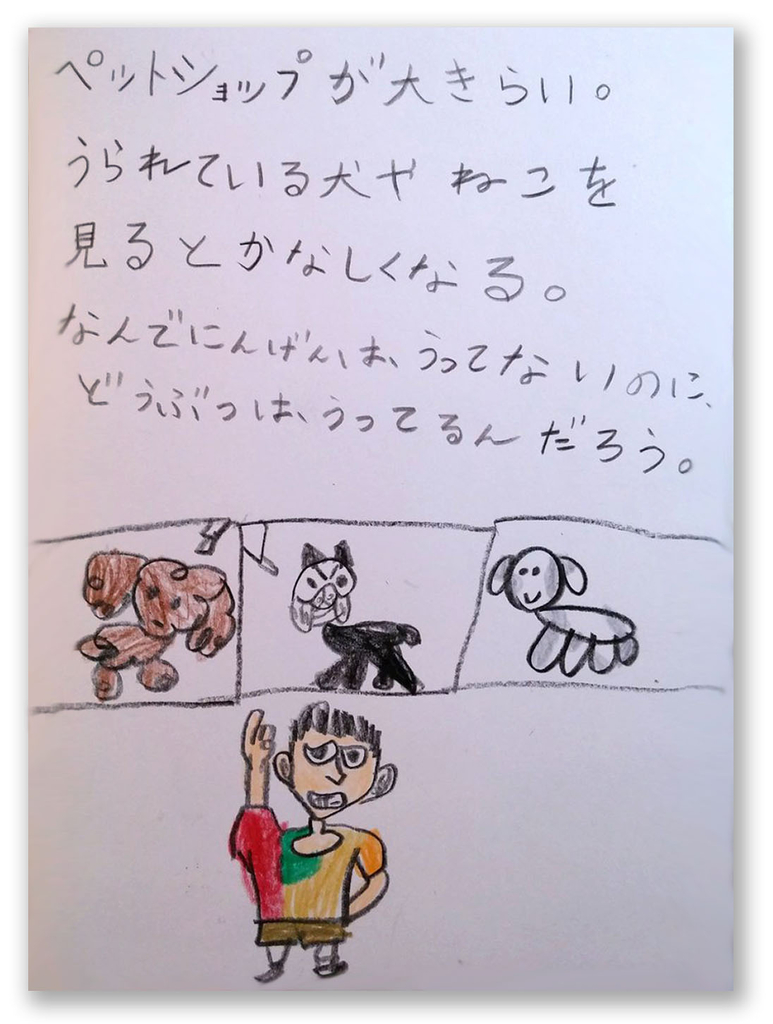 ペットショップが大きらい。
うられている犬やねこを
見るとかなしくなる。
なんでにんげんは、うってないのに、
どうぶつは、うってるんだろう。